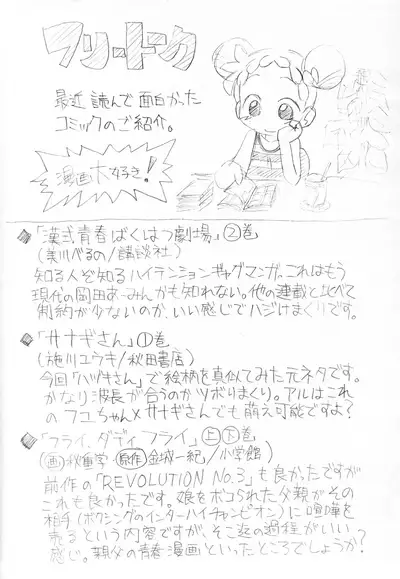 フリートーク
最近読んで面白かった
コミックのご紹介。
漫画大好き!
◆「漢弐青春ばくはつ劇場」②巻
(美川べるの/講談社)
知る人ぞ知るハイテンションギャグマンガ。これはもう
現代の岡田あーみんかも知れない。他の連載と比べて
制約が少ないのか、いい感じでハジけまくりです。
◆「サナギさん」①巻
(施川ユウキ/秋田書店)
今回「ハヅキさん」で絵柄を真似てみた元ネタです。
かなり波長が合うのかツボりまくり。アルはこれ
のフユちゃん×サナギさんでも萌え可能ですよ?
◆「フライ,ダディ,フライ」上下巻
(画)秋重学 (原作)金城一紀/小学館)
前作の「REVOLUTION No.3」も良かったですが
これも良かったです。娘をボコられた父親がその
相手(ボクシングのインターハイチャンピオン)に喧嘩を
売るという内容ですが、そこ迄の過程がいい
感じ。親父の青春漫画といったところでしょうか?